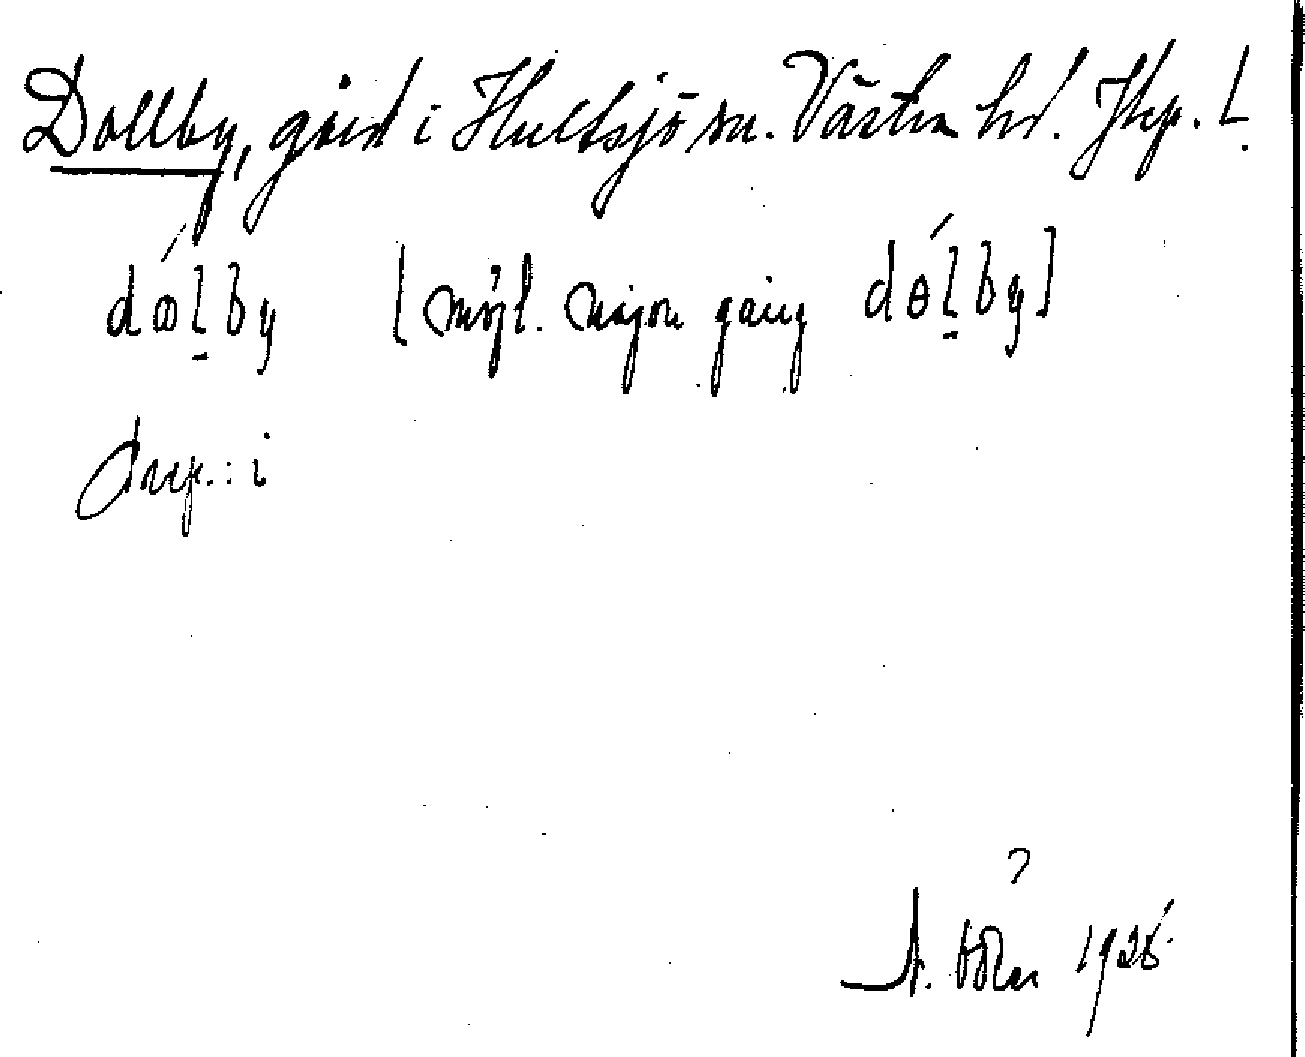 Dollby, gård i Hultsjö sn. Västra hd. Jkp. L.
dǿḷby [möjl. någon gång dɵ́ḷby]
Prep.: i
?
1925